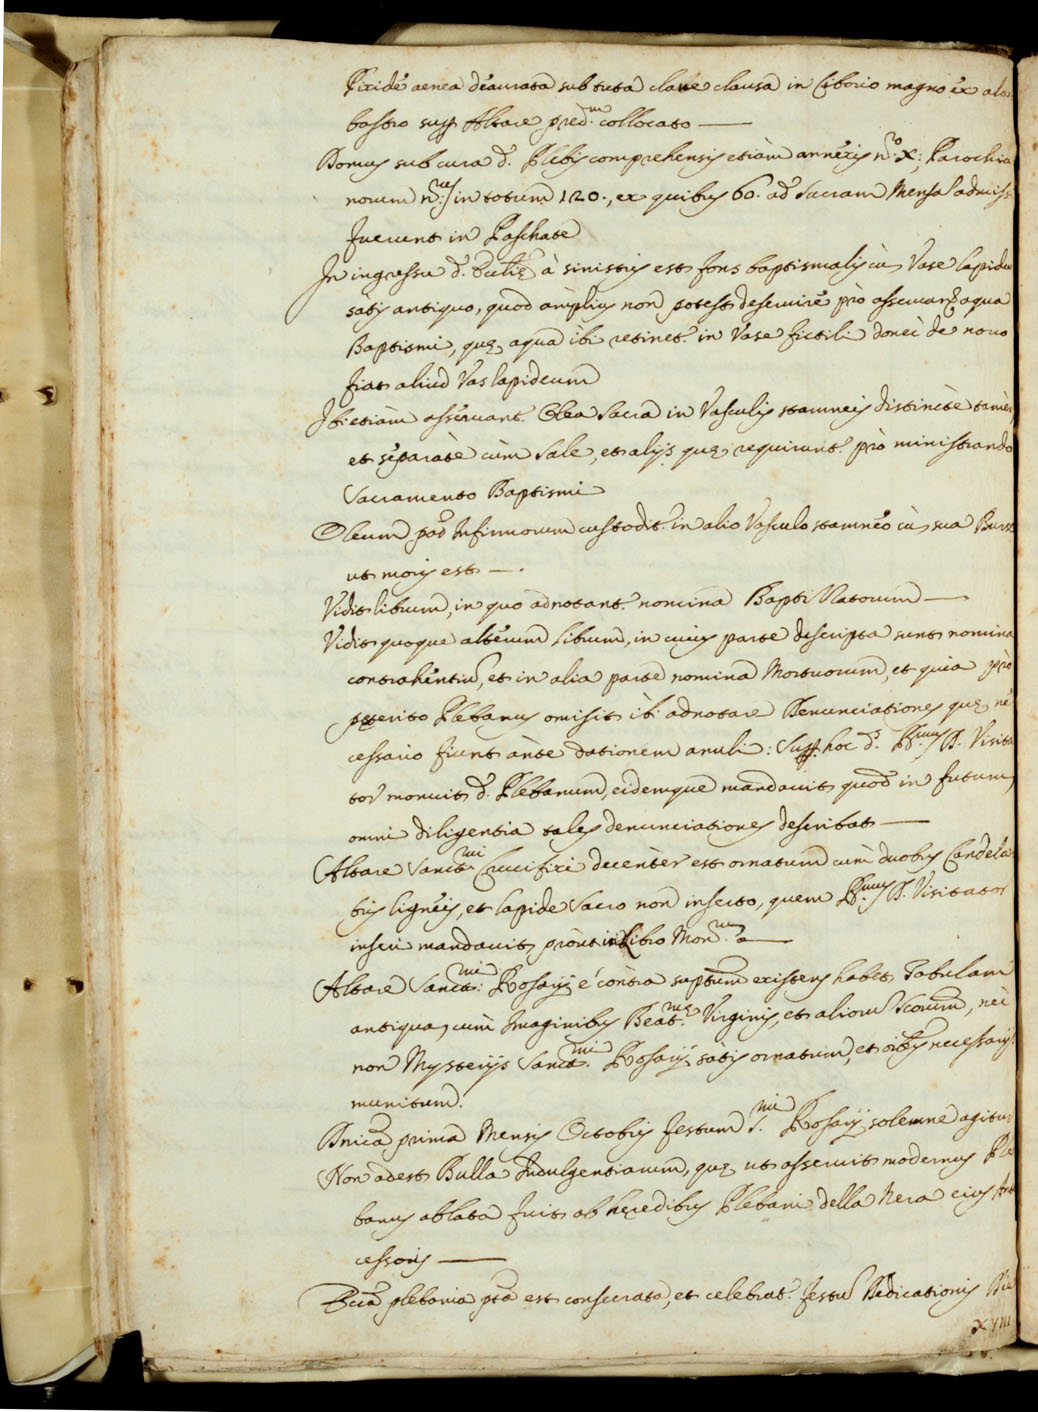 Pixide aenea deaurata sub tuta claue clausa in Ciborio magno ex ala
bastro sup Altare pred.m collocato —
Domus sub cura d. Plebis comprehensis etiam annexis n.ro X; Parochia
norum n.us in totum 120., ex quibus 60. ad Sacram Mensa admissi
fuerunt in Paschate
In ingressu d. Ecclię à sinistris est fons baptismalis cù Vase lapideo
satis antiquo, quod ampliùs non potest deseruire prò asseruand aqua
Baptismi, quę aqua ibi retinet.r in Vase fictili donec de nouo
fiat aliud Vas lapideum
Ibi etiam asseruant.r Olea Sacra in Vasculis stamneis distinctè tamèn,
et separatè cùm Sale, et alijs quę requirunt.r prò ministrando
Sacramento Baptismi
Oleum pod Infirmorum custodit.r in alio Vasculo stamneo cù sua Bursa
ut moris est —.
Vidit librum, in quo adnotant.r nomina BaptiZatorum —
Vidit quoque alterum librum, in cuius parte descripta sunt nomina
contrahentiu, et in alia parte nomina Mortuorum, et quia prò
pręterito Plebanus omisit ibi adnotare Denunciationes quę ne
cessario fiunt ante dationem anuli: Sup hoc d.s R.mus D. Visita
tor monuit d. Plebanum, eidemque mandauit quod in futurum
omni diligentia tales denunciationes describat —
Altare Sanct.mi Crucifixi decenter est ornatum cum duobus Candela
bris ligneis, et lapide Sacro non inserto, quem R.mus D. Visitator
inseri mandauit prout in Libro Mon.
Altare Sanct.mi Rosarij è contra suptum existens habet Tabulam
antiqua, cum Imaginibus Beat.mę Virginis, et aliorù Scorum, nec
non Mysterijs Sanct.mi Rosarij satis ornatum, et oibus necessarijs
munitum.
Dnica prima Mensis Octobris festum S.mi Rosarij solemne agitur
Non adest Bulla Indulgentiarum, quę ut asseruit modernus Ple
banus ablata fuit ab hęredibus Plebani della Nera eius Ante
cessoris —
Eccla plebania pta est consecrata, et celebrat.r festu Dedicationis Die
XVIII